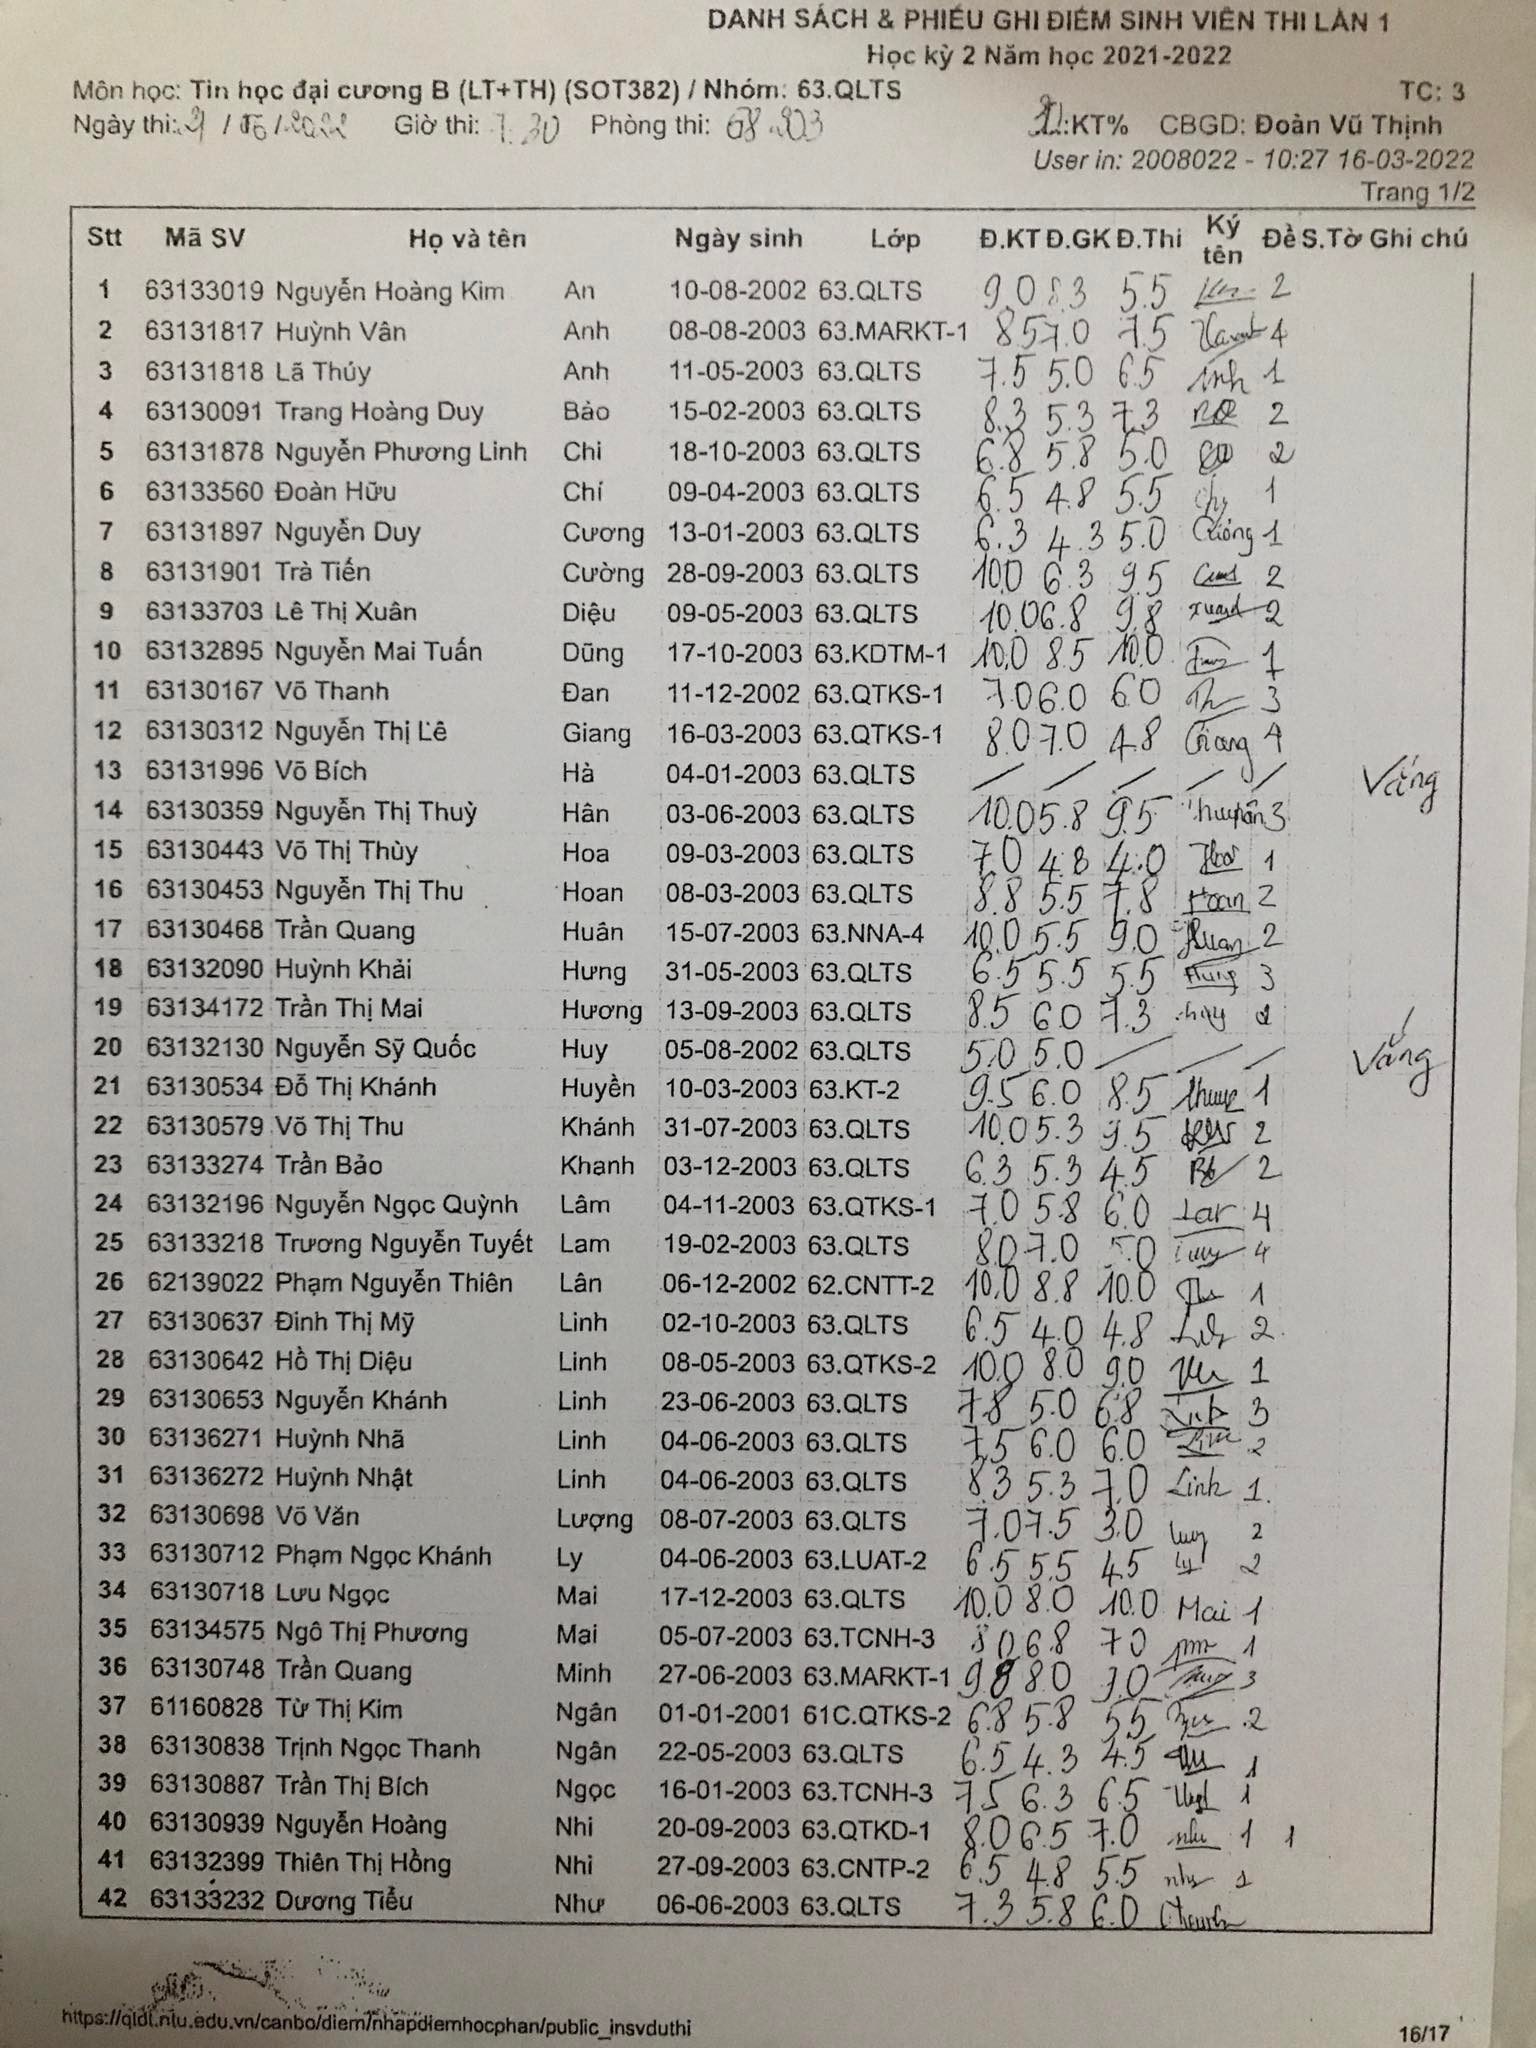 DANH SÁCH & PHIẾU GHI ĐIỂM SINH VIÊN THI LẦN 1
Học kỳ 2 Năm học 2021-2022
Môn học: Tin học đại cương B (LT+TH) (SOT382) / Nhóm: 63.QLTS TC: 3
Ngày thi: / /2022 Giờ thi: 7.30 Phòng thi: :KT% CBGD: Đoàn Vũ Thịnh
User in: 2008022 - 10:27 16-03-2022
Trang 1/2
Stt Mã SV Họ và tên Ngày sinh Lớp Đ.KT Đ.GK Đ.Thi Ký tên Đề S.Tờ Ghi chú
1 63133019 Nguyễn Hoàng Kim An 10-08-2002 63.QLTS 9.0 8.3 5.5 2
2 63131817 Huỳnh Vân Anh 08-08-2003 63.MARKT-1 8.5 7.0 7.5 4
3 63131818 Lã Thúy Anh 11-05-2003 63.QLTS 7.5 5.0 6.5 1
4 63130091 Trang Hoàng Duy Bảo 15-02-2003 63.QLTS 8.3 5.3 7.3 2
5 63131878 Nguyễn Phương Linh Chi 18-10-2003 63.QLTS 6.8 5.8 5.0 2
6 63133560 Đoàn Hữu Chí 09-04-2003 63.QLTS 6.5 4.8 5.5 1
7 63131897 Nguyễn Duy Cương 13-01-2003 63.QLTS 6.3 4.3 5.0 1
8 63131901 Trà Tiến Cường 28-09-2003 63.QLTS 10.0 6.3 9.5 2
9 63133703 Lê Thị Xuân Diệu 09-05-2003 63.QLTS 10.0 6.8 9.8 2
10 63132895 Nguyễn Mai Tuấn Dũng 17-10-2003 63.KDTM-1 10.0 8.5 10.0 1
11 63130167 Võ Thanh Đan 11-12-2002 63.QTKS-1 7.0 6.0 6.0 3
12 63130312 Nguyễn Thị Lê Giang 16-03-2003 63.QTKS-1 8.0 7.0 4.8 Giang 4
13 63131996 Võ Bích Hà 04-01-2003 63.QLTS / / / / / Vắng
14 63130359 Nguyễn Thị Thuỳ Hân 03-06-2003 63.QLTS 10.0 5.8 9.5 3
15 63130443 Võ Thị Thùy Hoa 09-03-2003 63.QLTS 7.0 4.8 4.0 1
16 63130453 Nguyễn Thị Thu Hoan 08-03-2003 63.QLTS 8.8 5.5 7.8 Hoan 2
17 63130468 Trần Quang Huân 15-07-2003 63.NNA-4 10.0 5.5 9.0 2
18 63132090 Huỳnh Khải Hưng 31-05-2003 63.QLTS 6.5 5.5 5.5 3
19 63134172 Trần Thị Mai Hương 13-09-2003 63.QLTS 8.5 6.0 7.3 2
20 63132130 Nguyễn Sỹ Quốc Huy 05-08-2002 63.QLTS 5.0 5.0 / / / Vắng
21 63130534 Đỗ Thị Khánh Huyền 10-03-2003 63.KT-2 9.5 6.0 8.5 1
22 63130579 Võ Thị Thu Khánh 31-07-2003 63.QLTS 10.0 5.3 9.5 2
23 63133274 Trần Bảo Khanh 03-12-2003 63.QLTS 6.3 5.3 4.5 2
24 63132196 Nguyễn Ngọc Quỳnh Lâm 04-11-2003 63.QTKS-1 7.0 5.8 6.0 4
25 63133218 Trương Nguyễn Tuyết Lam 19-02-2003 63.QLTS 8.0 7.0 5.0 4
26 62139022 Phạm Nguyễn Thiên Lân 06-12-2002 62.CNTT-2 10.0 8.8 10.0 1
27 63130637 Đinh Thị Mỹ Linh 02-10-2003 63.QLTS 6.5 4.0 4.8 2
28 63130642 Hồ Thị Diệu Linh 08-05-2003 63.QTKS-2 10.0 8.0 9.0 1
29 63130653 Nguyễn Khánh Linh 23-06-2003 63.QLTS 7.8 5.0 6.8 3
30 63136271 Huỳnh Nhã Linh 04-06-2003 63.QLTS 7.5 6.0 6.0 2
31 63136272 Huỳnh Nhật Linh 04-06-2003 63.QLTS 8.3 5.3 7.0 Linh 1
32 63130698 Võ Văn Lượng 08-07-2003 63.QLTS 7.0 7.5 3.0 2
33 63130712 Phạm Ngọc Khánh Ly 04-06-2003 63.LUAT-2 6.5 5.5 4.5 2
34 63130718 Lưu Ngọc Mai 17-12-2003 63.QLTS 10.0 8.0 10.0 Mai 1
35 63134575 Ngô Thị Phương Mai 05-07-2003 63.TCNH-3 8.0 6.8 7.0 1
36 63130748 Trần Quang Minh 27-06-2003 63.MARKT-1 9.8 8.0 3
37 61160828 Từ Thị Kim Ngân 01-01-2001 61C.QTKS-2 6.8 5.8 5.5 2
38 63130838 Trịnh Ngọc Thanh Ngân 22-05-2003 63.QLTS 6.5 4.3 4.5 1
39 63130887 Trần Thị Bích Ngọc 16-01-2003 63.TCNH-3 7.5 6.3 6.5 1
40 63130939 Nguyễn Hoàng Nhi 20-09-2003 63.QTKD-1 8.0 6.5 7.0 1 1
41 63132399 Thiên Thị Hồng Nhi 27-09-2003 63.CNTP-2 6.5 4.8 5.5 1
42 63133232 Dương Tiểu Như 06-06-2003 63.QLTS 7.3 5.8 6.0
https://qldt.ntu.edu.vn/canbo/diem/nhapdiemhocphan/public_insvduthi 16/17